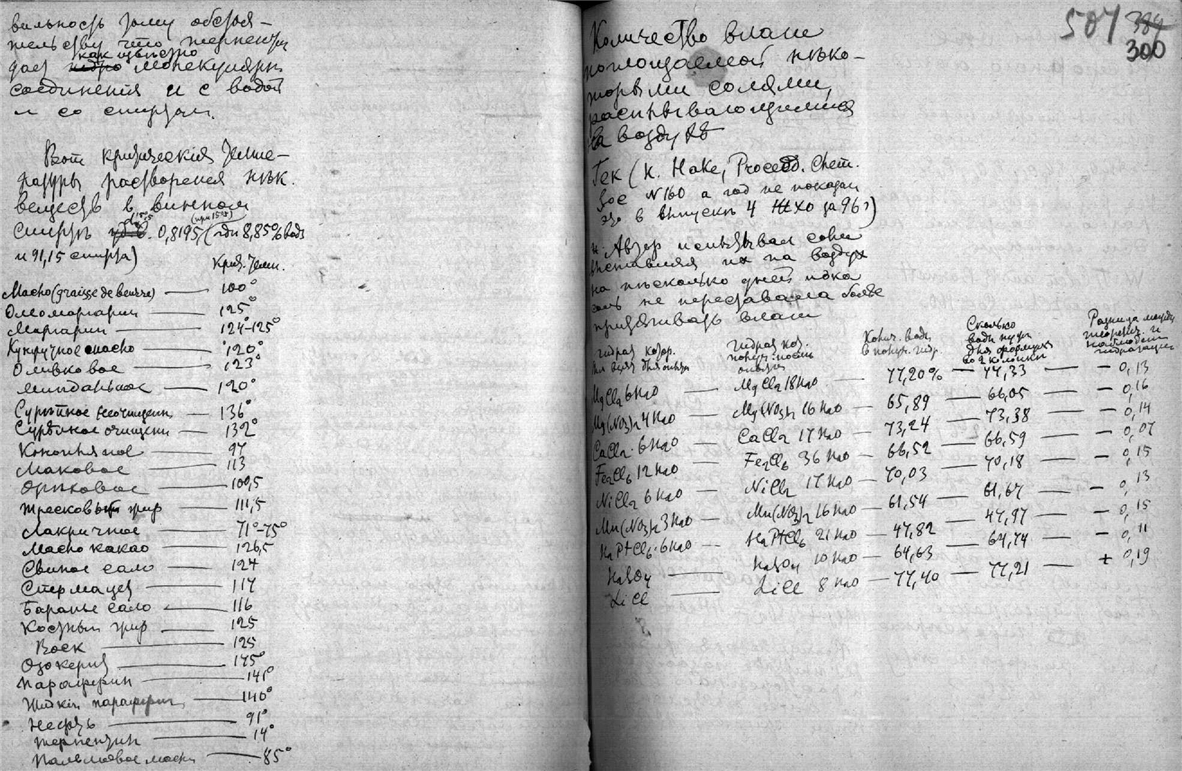 вильность тому обстоя-
тельству что терпентин
как известно
дает молекулярн
соединения и с водой
и со спиртом.
Вот критическия темпе-
ратуры растворения нѣк.
веществ в винном
(при 15°)
спиртѣ 0,8195 (или 8,85% вод
и 91,15 спирта)
Крит. темп.
Масло (graisse de beurre) — 100°
Олеомаргарин — 125°
Маргарин — 124°-125°
Кукурузное масло — 120°
Оливковое — 123°
Миндальное — 120°
Сурѣпное неочищенн — 136°
Сурѣпное очищенн — 132°
Конопляное — 97
Маковое — 113
Орѣховое — 100,5
Тресковый жир — 111,5
Лакричное — 71°-75°
Масло какао — 126,5
Свиное сало — 124
Спермацет — 117
Баранье сало — 116
Костный жир — 125
Воск — 125
Озокерит — 145°
Парафин — 141°
Жидкий парафин — 140°
Нефть — 91°
Терпентин — 14°
Пальмовое масло — 85°
507 384
300
Количество влаги
поглощаемой нѣко-
торыми солями,
расплывающимися
на воздухѣ
Гек (H. Hake, Proceed. Chem.
Soc N160 а год не показан
это в выпускѣ 4 ЖХО за 96 г)
Автор испытывал соли
оставляя их на воздухѣ
на нѣсколько дней пока
соль не переставала болѣе
притягивать влаги
гидрат котор. гидрат кот. Колич. воды Сколько Разница между
был взят для опыта получ. послѣ в получ. гидр. воды нужн теоретич. и
опыта для формулы наблюден
во 2 колонкѣ гидратации
MgCl2 6H2O — MgCl2 18H2O — 77,20% — 77,33 — – 0,13
Mg(NO3)2 4H2O — Mg(NO3)2 16H2O — 65,89 — 66,05 — – 0,16
CaCl2 · 6H2O — CaCl2 17H2O — 73,24 — 73,38 — – 0,14
Fe2Cl6 12H2O — Fe2Cl6 36H2O — 66,52 — 66,59 — – 0,07
NiCl2 6H2O — NiCl2 17H2O — 70,03 — 70,18 — – 0,15
Mn(NO3)2 3H2O — Mn(NO3)2 16H2O — 61,54 — 61,67 — – 0,13
Na2PtCl6 · 6H2O — Na2PtCl6 21H2O — 47,82 — 47,97 — – 0,15
H2SO4 — H2SO4 10H2O — 64,63 — 64,74 — – 0,11
LiCl — LiCl 8H2O — 77,40 — 77,21 — + 0,19